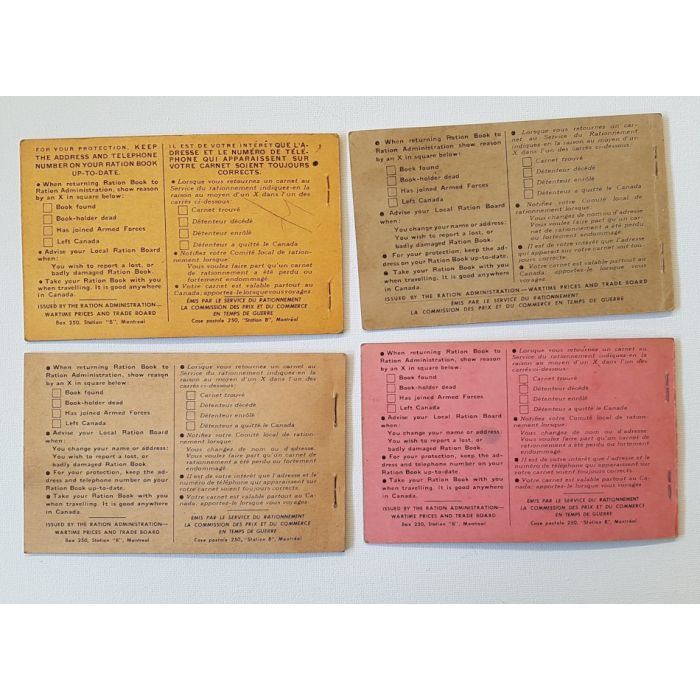 FOR YOUR PROTECTION, KEEP
THE ADDRESS AND TELEPHONE
NUMBER ON YOUR RATION BOOK
UP-TO-DATE.
● When returning Ration Book to
Ration Administration, show reason
by an X in square below:
Book found
Book-holder dead
Has joined Armed Forces
Left Canada
● Advise your Local Ration Board
when:
You wish to report a lost, or
badly damaged Ration Book.
● Take your Ration Book with you
when travelling. It is good anywhere
in Canada.
ISSUED BY THE RATION ADMINISTRATION—
WARTIME PRICES AND TRADE BOARD
Box 250, Station "B", Montreal
IL EST DE VOTRE INTÉRÊT QUE L'A-
DRESSE ET LE NUMÉRO DE TÉLÉ-
PHONE QUI APPARAISSENT SUR
VOTRE CARNET SOIENT TOUJOURS
CORRECTS.
● Lorsque vous retournez un carnet au
Service du rationnement indiquez-en la
raison au moyen d'un X dans l'un des
carrés ci-dessous:
Carnet trouvé
Détenteur décédé
Détenteur enrôlé
Détenteur a quitté le Canada
● Notifiez votre Comité local de ration-
nement lorsque
Vous voulez faire part qu'un carnet
de rationnement a été perdu ou
fortement endommagé.
● Votre carnet est valable partout au
Canada; apportez-le lorsque vous voyagez.
ÉMIS PAR LE SERVICE DU RATIONNEMENT
LA COMMISSION DES PRIX ET DU COMMERCE
EN TEMPS DE GUERRE
Case postale 250, "Station B", Montréal
● When returning Ration Book to
Ration Administration show reason
by an X in square below:
Book found
Book-holder dead
Has joined Armed Forces
Left Canada
● Advise your Local Ration Board
when:
You change your name or address.
You wish to report a lost, or
badly damaged Ration Book.
● For your protection, keep the ad-
dress on your Ration Book up-to-date.
● Take your Ration Book with you
when travelling. It is good anywhere
in Canada.
● Lorsque vous retournez un car-
net au Service du Rationnement
indiquez-en la raison au moyen d'un
X dans l'un des carrés ci-dessous:
Carnet trouvé
Détenteur décédé
Détenteur enrôlé
Détenteur a quitté le Canada
● Notifiez votre Comité local de
rationnement lorsque:
Vous changez de nom ou d'adresse
Vous voulez faire part qu'un car-
net de rationnement a été perdu
ou fortement endommagé.
● Il est de votre intérêt que l'adresse
qui apparaît sur votre carnet soit tou-
jours correcte.
● Votre carnet est valable partout au
Canada; apportez-le lorsque vous
voyagez.
ISSUED BY THE RATION ADMINISTRATION—WARTIME PRICES AND TRADE BOARD
ÉMIS PAR LE SERVICE DU RATIONNEMENT
LA COMMISSION DES PRIX ET DU COMMERCE EN TEMPS DE GUERRE
● When returning Ration Book to
Ration Administration, show reason
by an X in square below:
Book found
Book-holder dead
Has joined Armed Forces
Left Canada
● Advise your Local Ration Board
when:
You change your name or address:
You wish to report a lost, or
badly damaged Ration Book.
● For your protection, keep the ad-
dress and telephone number on your
Ration Book up-to-date.
● Take your Ration Book with you
when travelling. It is good anywhere
in Canada.
ISSUED BY THE RATION ADMINISTRATION—
WARTIME PRICES AND TRADE BOARD
Box 250, Station "B", Montreal
● Lorsque vous retournez un carnet au
Service du rationnement indiquez-en la
raison au moyen d'un X dans l'un des
carrés ci-dessous:
Carnet trouvé
Détenteur décédé
Détenteur enrôlé
Détenteur a quitté le Canada
● Notifiez votre Comité local de ration-
nement lorsque:
Vous changez de nom ou d'adresse.
Vous voulez faire part qu'un carnet de
rationnement a été perdu ou fortement
endommagé.
● Il est de votre intérêt que l'adresse et le
numéro de téléphone qui apparaissent sur
votre carnet soient toujours corrects.
● Votre carnet est valable partout au Ca-
nada; apportez-le lorsque vous voyagez.
ÉMIS PAR LE SERVICE DU RATIONNEMENT
LA COMMISSION DES PRIX ET DU COMMERCE
EN TEMPS DE GUERRE
Case postale 250, "Station B", Montréal
● When returning Ration Book to
Ration Administration, show reason
by an X in square below:
Book found
Book-holder dead
Has joined Armed Forces
Left Canada
● Advise your Local Ration Board
when:
You change your name or address:
You wish to report a lost, or
badly damaged Ration Book.
● For your protection, keep the ad-
dress and telephone number on your
Ration Book up-to-date.
● Take your Ration Book with you
when travelling. It is good anywhere
in Canada.
ISSUED BY THE RATION ADMINISTRATION—
WARTIME PRICES AND TRADE BOARD
Box 250, Station "B", Montreal
● Lorsque vous retournez un carnet au
Service du rationnement indiquez-en la
raison au moyen d'un X dans l'un des
carrés ci-dessous:
Carnet trouvé
Détenteur décédé
Détenteur enrôlé
Détenteur a quitté le Canada
● Notifiez votre Comité local de ration-
nement lorsque:
Vous changez de nom ou d'adresse.
Vous voulez faire part qu'un carnet de
rationnement a été perdu ou fortement
endommagé.
● Il est de votre intérêt que l'adresse et le
numéro de téléphone qui apparaissent sur
votre carnet soient toujours corrects.
● Votre carnet est valable partout au Ca-
nada; apportez-le lorsque vous voyagez.
ÉMIS PAR LE SERVICE DU RATIONNEMENT
LA COMMISSION DES PRIX ET DU COMMERCE
EN TEMPS DE GUERRE
Case postale 250, "Station B", Montréal